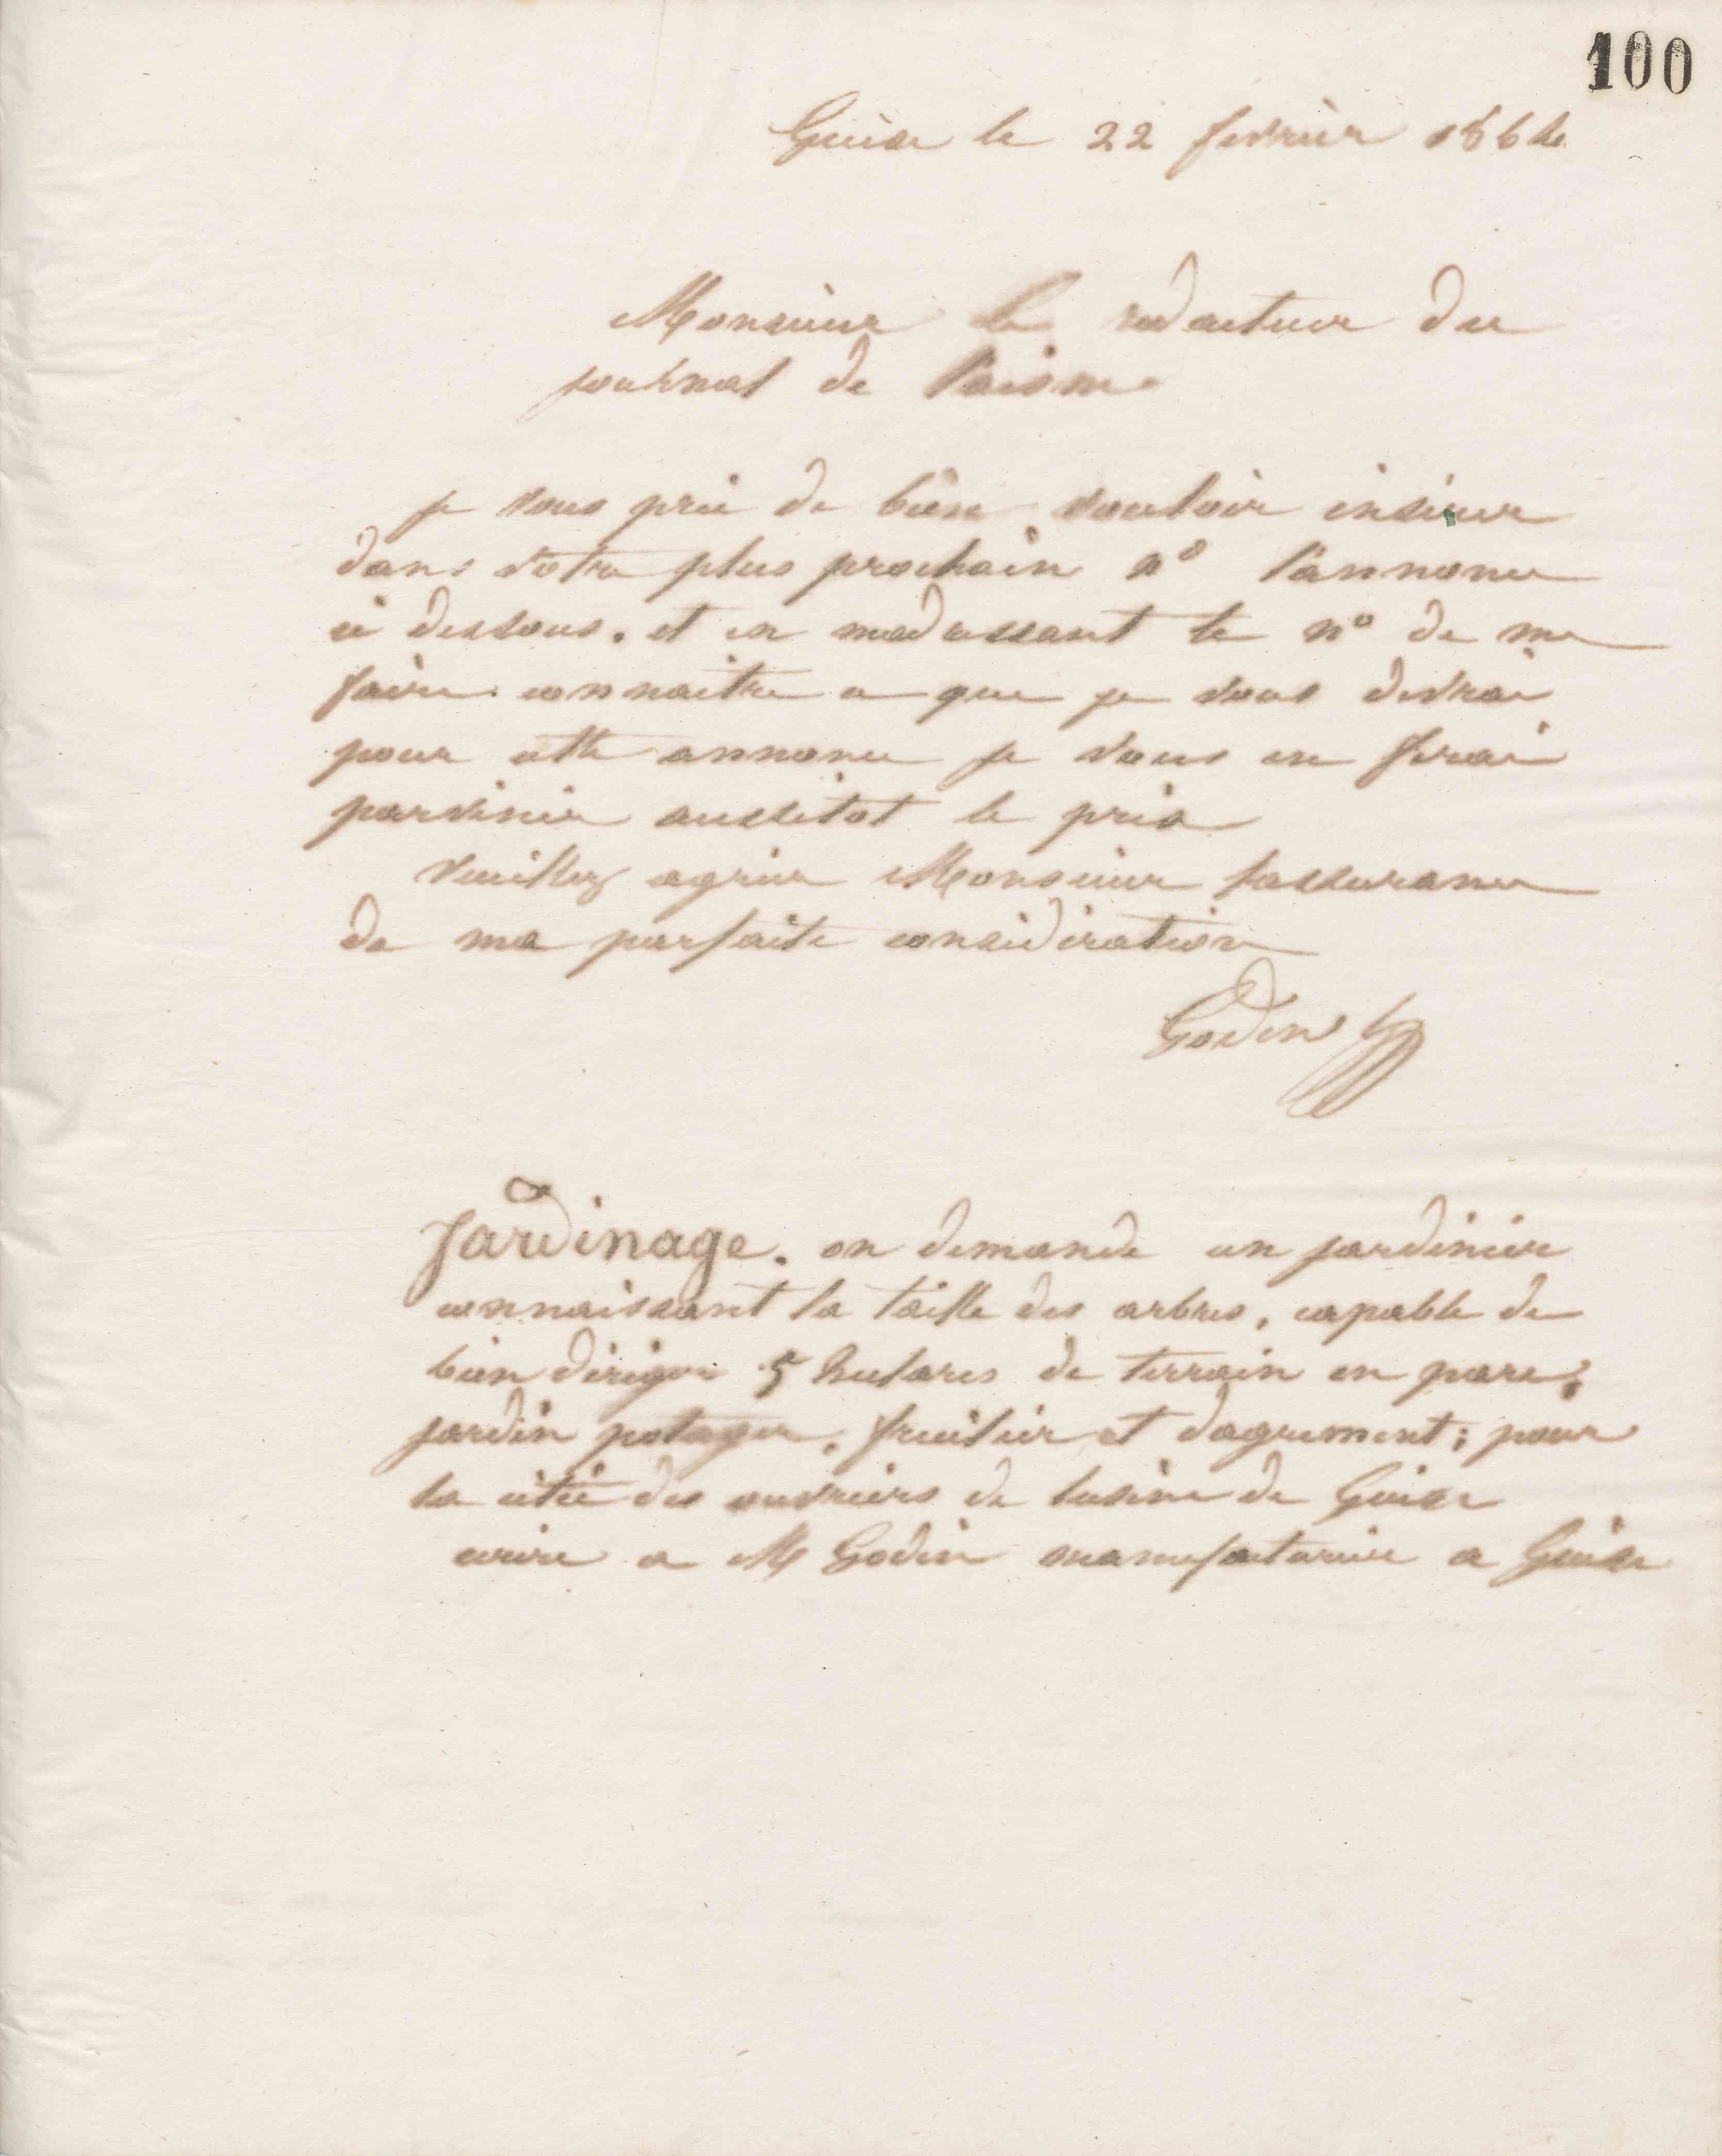 100
Guise le 22 fevrier 1864
Monsieur le redacteur du
journal de l'aisne
je vous prie de bien vouloir inserer
dans votre plus prochain n° l'annonce
ci dessous. et en madressant le n° de me
faire connaitre ce que je vous devrai
pour cette annonce je vous en ferai
parvenir aussitot le prix
Veuillez agréer Monsieur lassurance
de ma parfaite considération
Godin
Jardinage. on demande un jardinier
connaissant la taille des arbres, capable de
bien diriger 5 hectares de terrain en parc,
jardin potager, fruitier et dagrement; pour
la cité des ouvriers de lusine de Guise
ecrire a M Godin manufacturier a Guise